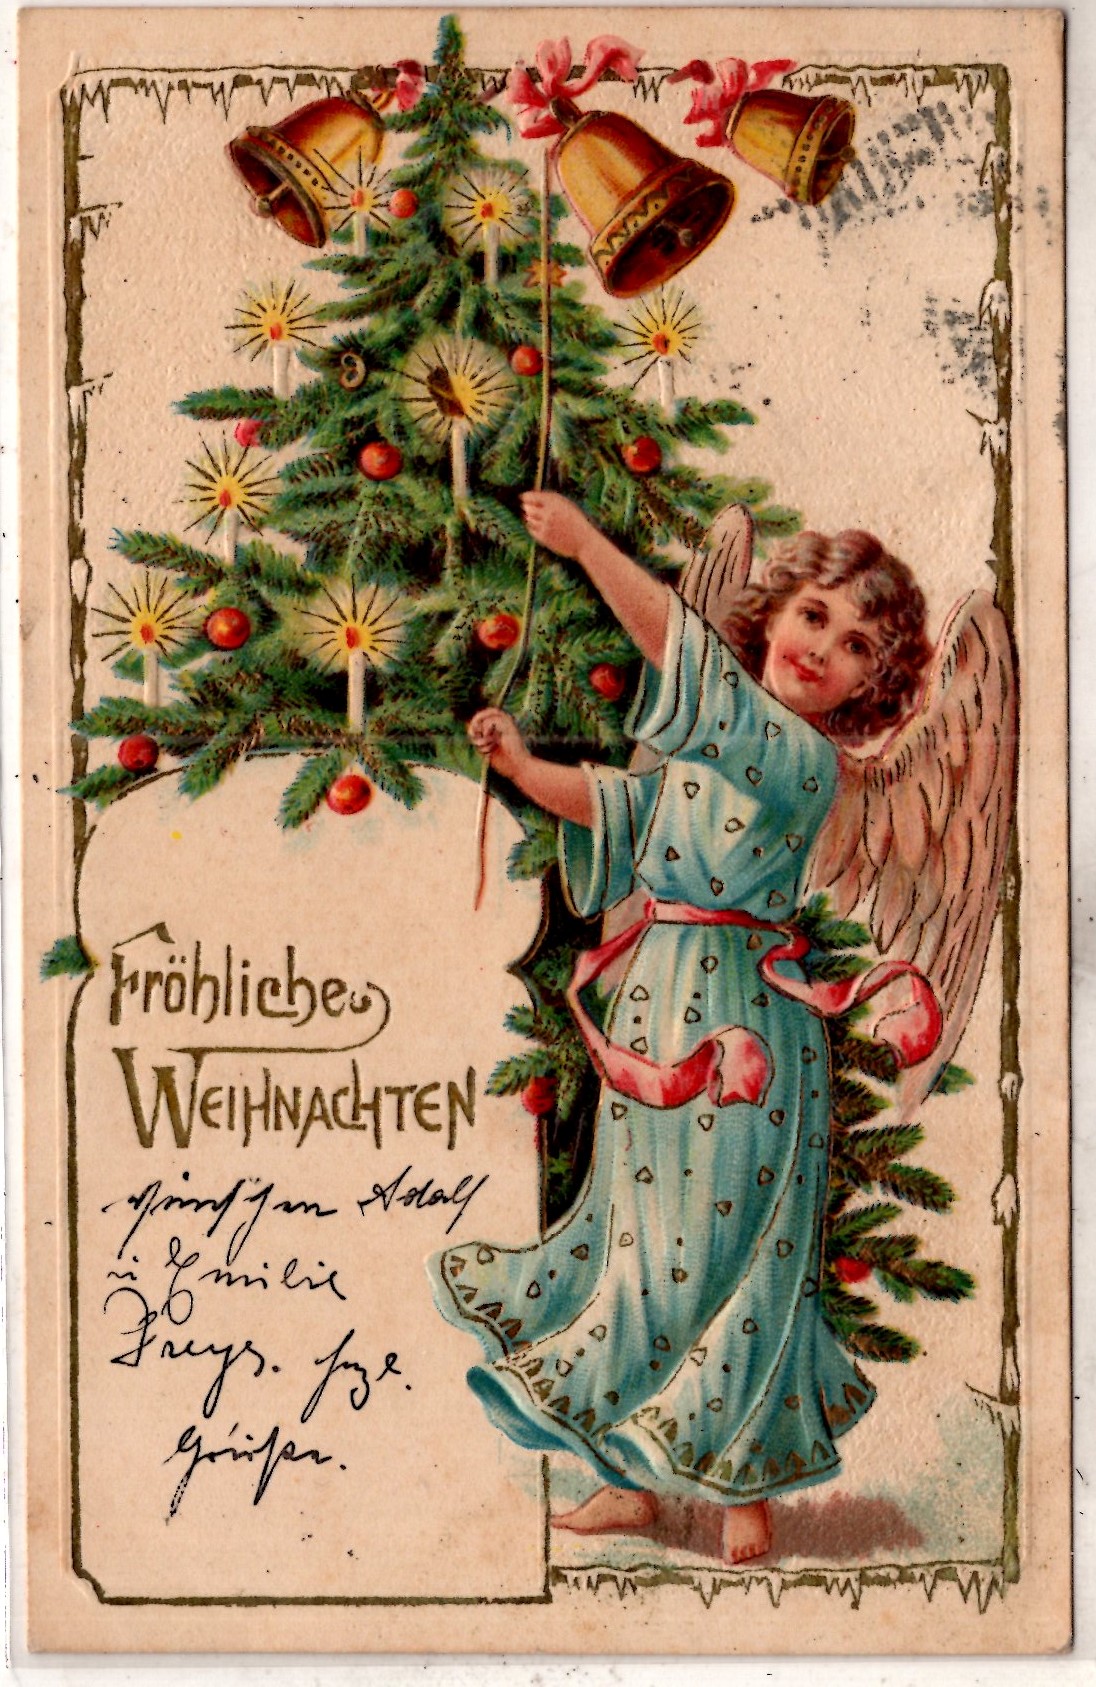 Fröhliche
WEIHNACHTEN
wünschen Adolf
u Emilie
Freys. hzl.
Grüße.